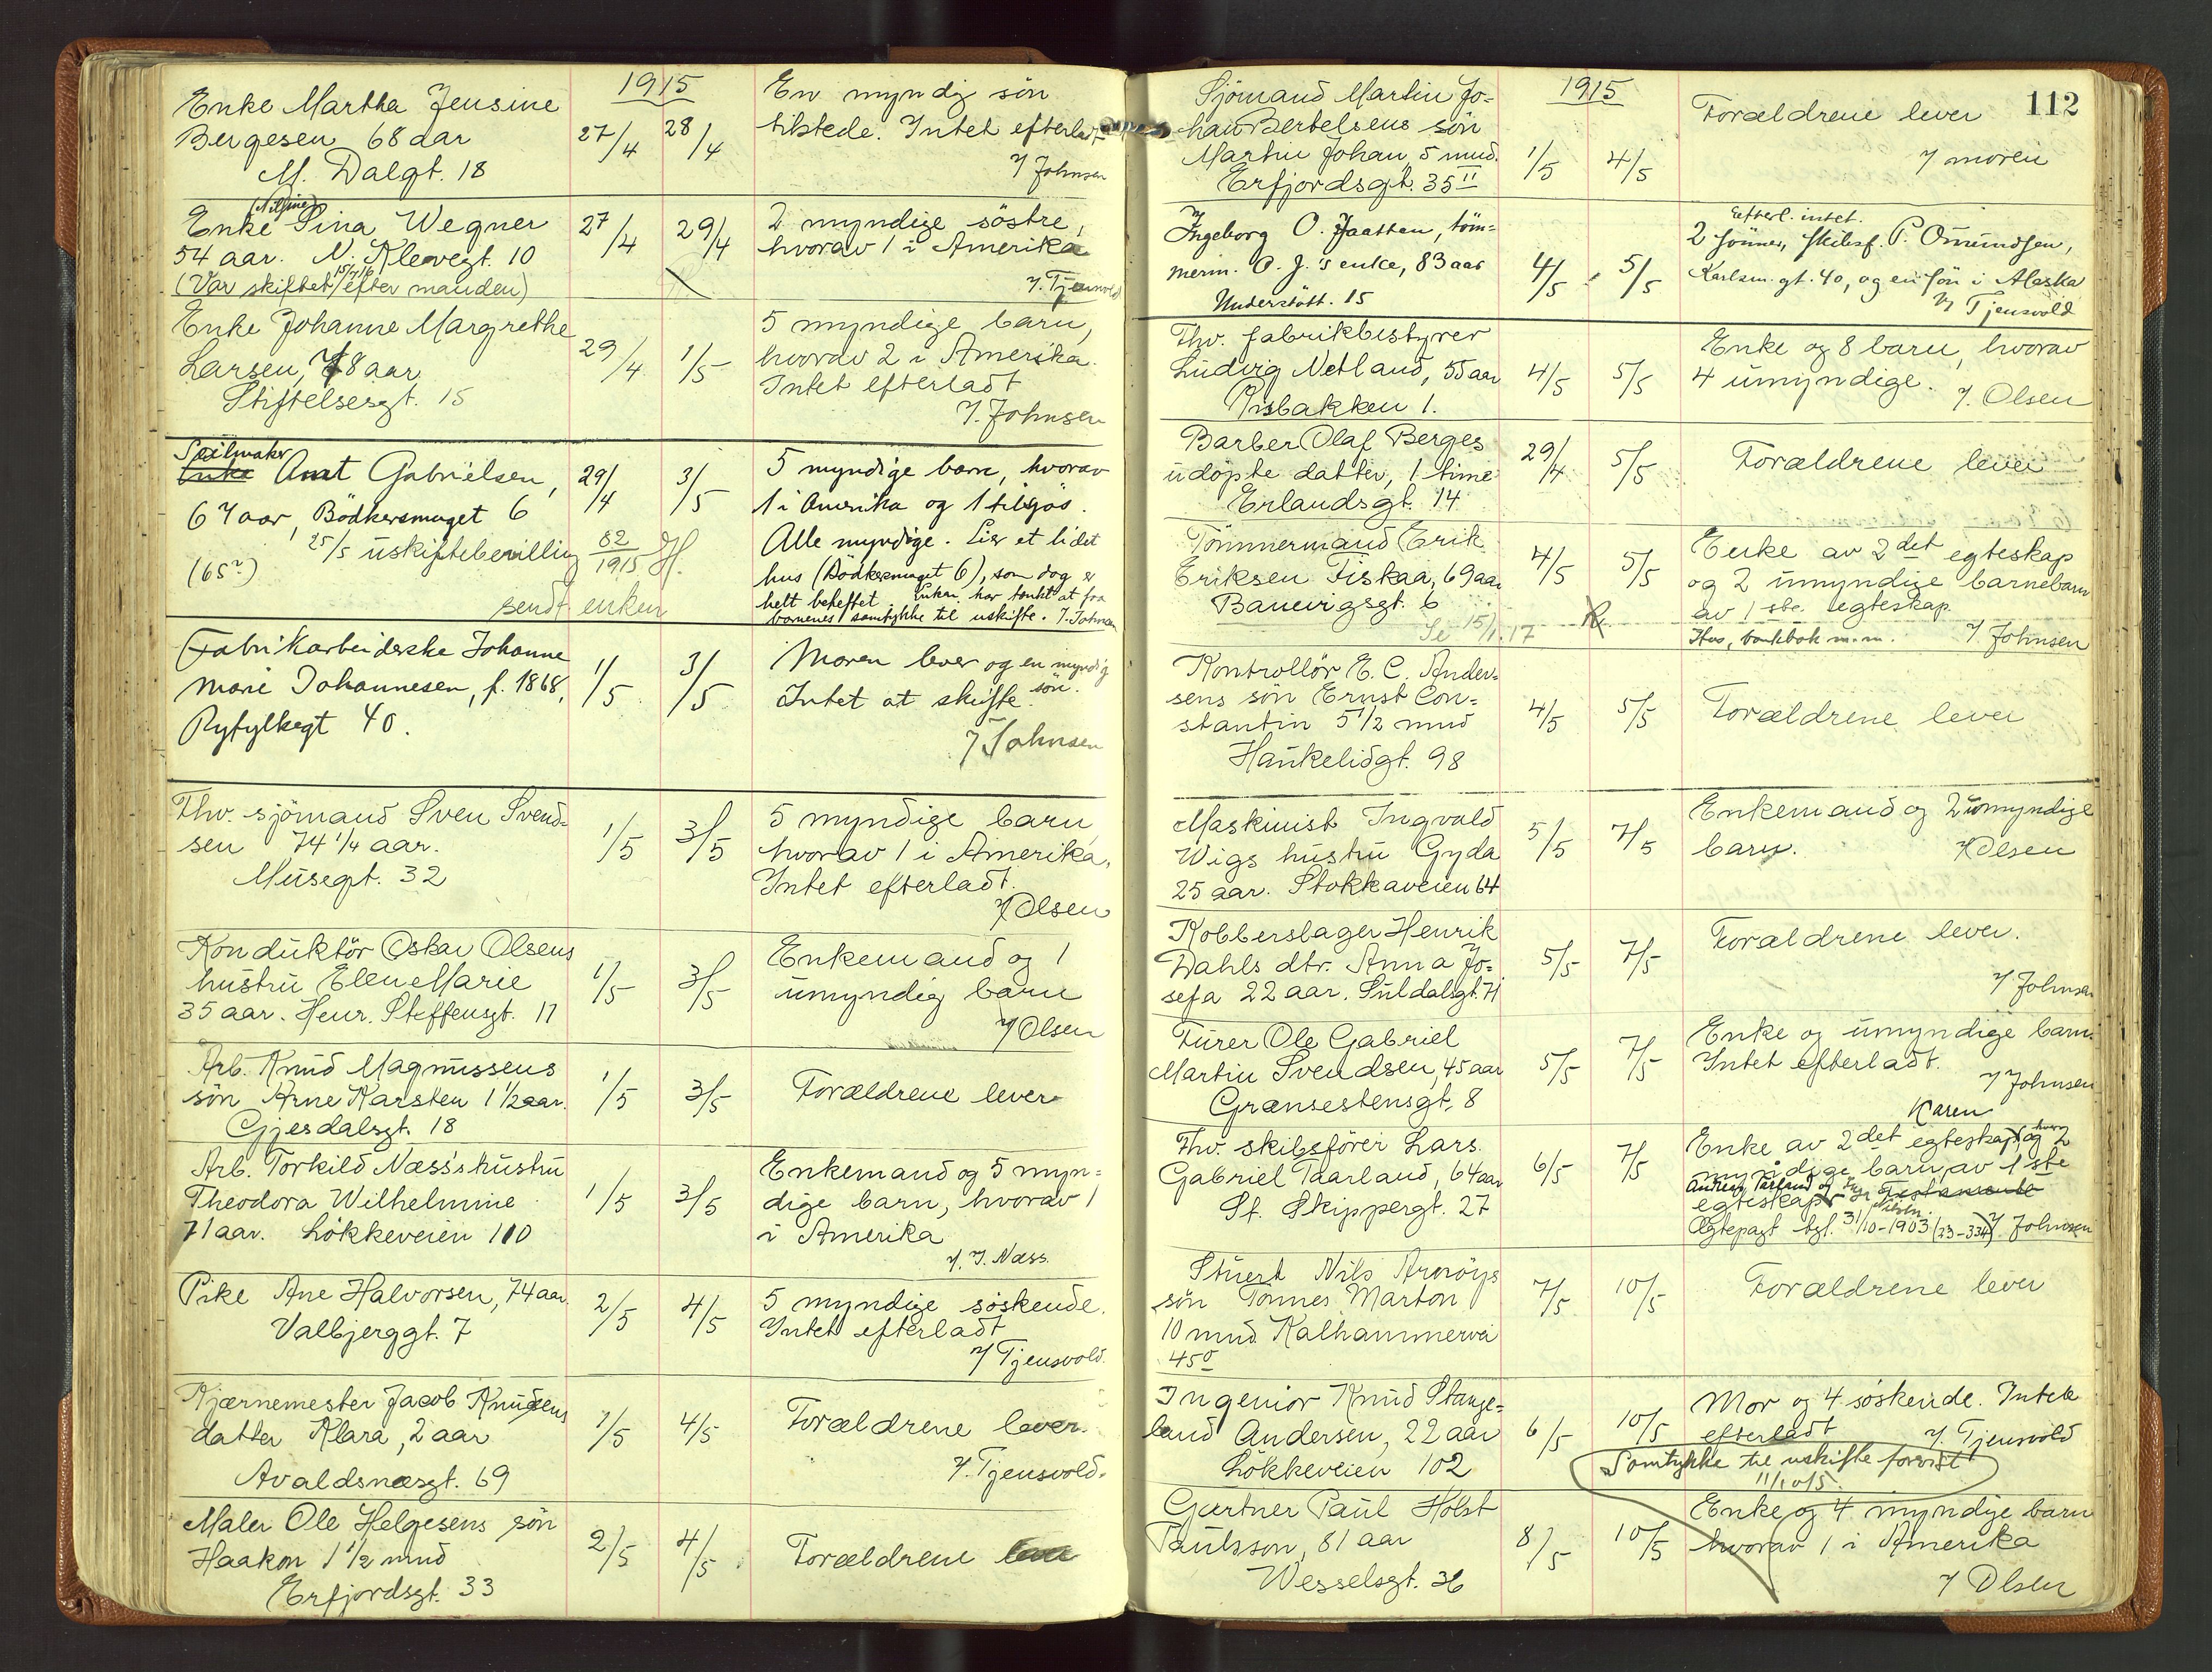 1915
Enke Martha Jensine
Bergesen 68 aar
M. Dalgt. 18
27/4 28/4
En myndig søn
tilstede. Intet efterladt
V Johnsen
(Nilsine)
Enke Sina Wegner
54 aar. N. Klevegt. 10
(Var skiftet efter manden)
27/4 29/4
2 myndige søstre,
hvorav 1 i Amerika
V. Tjensvold
Enke Johanne Margrethe
Larsen, 78 aar
Stiftelsesgt. 15
29/4 1/5
5 myndige barn,
hvorav 2 i Amerika.
Intet efterladt
V. Johnsen
Seilmaker
Enke Amt Gabrielsen,
67 aar, Bödkersmuget 6
(65?)
25/5 uskiftebevilling 82/1915 H.
sendt enken
29/4 3/5
5 myndige barn, hvorav
1 i Amerika og 1 tilsjøs.
Alle myndige. Eier et lidet
hus (Bödkersmuget 6), som dog er
helt beheftet. Enken har tænkt at faa
barnenes samtykke til uskifte. V. Johnsen
Fabrikarbeiderske Johanne
Marie Johannesen, f. 1868,
Ryfylkegt 40.
1/5 3/5
Moren lever og en myndig
søn.
Intet at skifte.
V Johnsen
Fhv. sjömand Sven Svend-
sen 74 1/4 aar.
Musegt. 32
1/5 3/5
5 myndige barn
hvorav 1 i Amerika.
Intet efterladt.
V Olsen
Konduktör Oskar Olsens
hustru Elen Marie
35 aar. Henr. Steffensgt. 11
1/5 3/5
Enkemand og 1
umyndig barn
V Olsen
Arb. Knud Magnussens
sön Arne Karsten 1 1/2 aar.
Gjesdalsgt. 18
1/5 3/5
Forældrene lever
Arb. Torkild Næss's hustru
Theodora Wilhelmine
71 aar. Lökkeveien 110
1/5 3/5
Enkemand og 5 myn-
dige barn, hvorav 1
i Amerika
V. T. Næss.
Pike Ane Halvorsen, 74 aar.
Valbjerggt. 7
2/5 4/5
5 myndige söskende.
Intet efterladt
V Tjensvold.
Kjærnemester Jacob Knudsens
datter Klara, 2 aar
Avaldsnæsgt. 69
1/5 4/5
Forældrene lever.
V. Tjensvold.
Maler Ole Helgesens sön
Haakon 1 1/2 mnd
Erfjordsgt. 33
2/5 4/5
Forældrene
112
1915
Sjömand Martin Jo-
han Bertelsens sön
Martin Johan, 5 mnd.
Erfjordsgt. 35 II
1/5 4/5
Forældrene lever
V moren
Ingeborg O. Jaatten, töm-
merm. O. J.'s enke, 83 aar
Understött. 15
4/5 5/5
Efterl. intet.
2 sönner, skibsf. P. Omundsen,
Karlsm. gt. 40, og en sön i Alaska
V Tjensvold
Fhv. fabrikbestyrer
Ludvig Netland, 55 aar
Risbakken 1.
4/5 5/5
Enke og 8 barn, hvorav
4 umyndige.
V. Olsen
Barber Olaf Berges
udöpte datter, 1 time
Erlandsgt. 14
29/4 5/5
Forældrene lever
Tömmermand Erik
Eriksen Fiskaa, 69 aar
Banevigsgt. 6
Se 15/1.17
4/5 5/5
Enke av 2det egteskap
og 2 umyndige barnebarn
av 1ste egteskap
Hus, bankbok m.m. V Johnsen
Kontrollör E. C. Ander-
sens sön Ernst Con-
stantin 5 1/2 mnd
Haukelidgt. 98
4/5 5/5
Forældrene lever
Maskinist Ingvald
Wigs hustru Gyda
25 aar. Stokkaveien 64
5/5 7/5
Enkemand og 2 umyndige
barn.
V Olsen
Kobberslager Henrik
Dahls dtr. Anna Jo-
sefa 22 aar. Suldalsgt. 71
5/5 7/5
Forældrene lever.
V Johnsen
Furer Ole Gabriel
Martin Svendsen, 45 aar
Grænsestensgt. 8
5/5 7/5
Enke og umyndige barn.
Intet efterladt.
V Johnsen
Fhv. skibsförer Lars
Gabriel Taarland, 64 aar
St. Skippergt. 27
6/5 7/5
Karen
Enke av 2det egteskap og 2
myndige barn av 1ste
Andreas Tarland og
egteskap Testamente
Ægtepagt tgl. 31/10-1903 (23-334) V Johnsen
Stuert Nils Arnöys
sön Tönnes Marton
10 mnd Kalhammervei
45
7/5 10/5
Forældrene lever
Ingeniör Knud Stange-
land Andersen, 22 aar
Lökkeveien 102
6/5 10/5
Mor og 4 söskende. Intet
efterladt V. Tjensvold
Samtykke til uskifte forevist
Gartner Paul Holst
Paulsson, 81 aar
Wesselsgt. 36
8/5 10/5
Enke og 4 myndige barn
hvorav 1 i Amerika
V Olsen